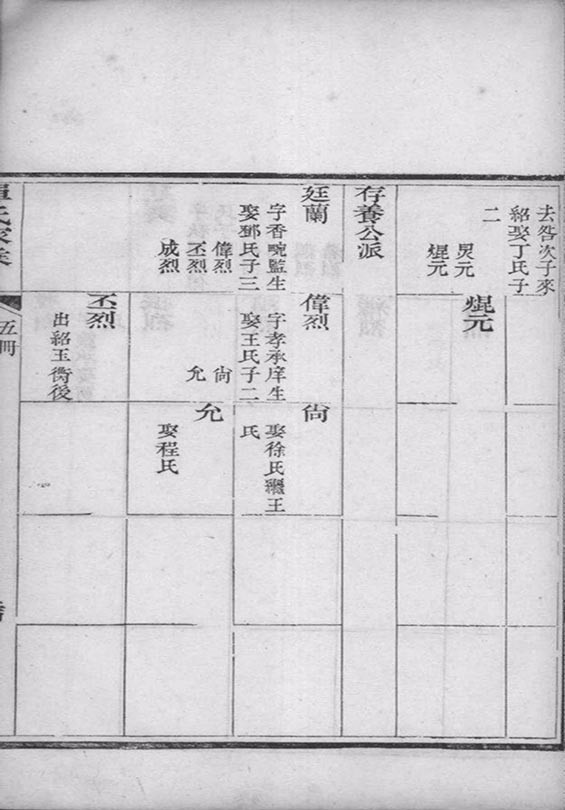 去咎次子來
紹娶丁氏子
二
炅元
焜元
焜元
存養公派
廷蘭
字香畹監生
娶鄧氏子三
偉烈
丕烈
成烈
偉烈
字孝承庠生
娶王氏子二
尙
允
尙
娶徐氏繼王
氏
允
娶程氏
丕烈
出紹玉衡後
五冊